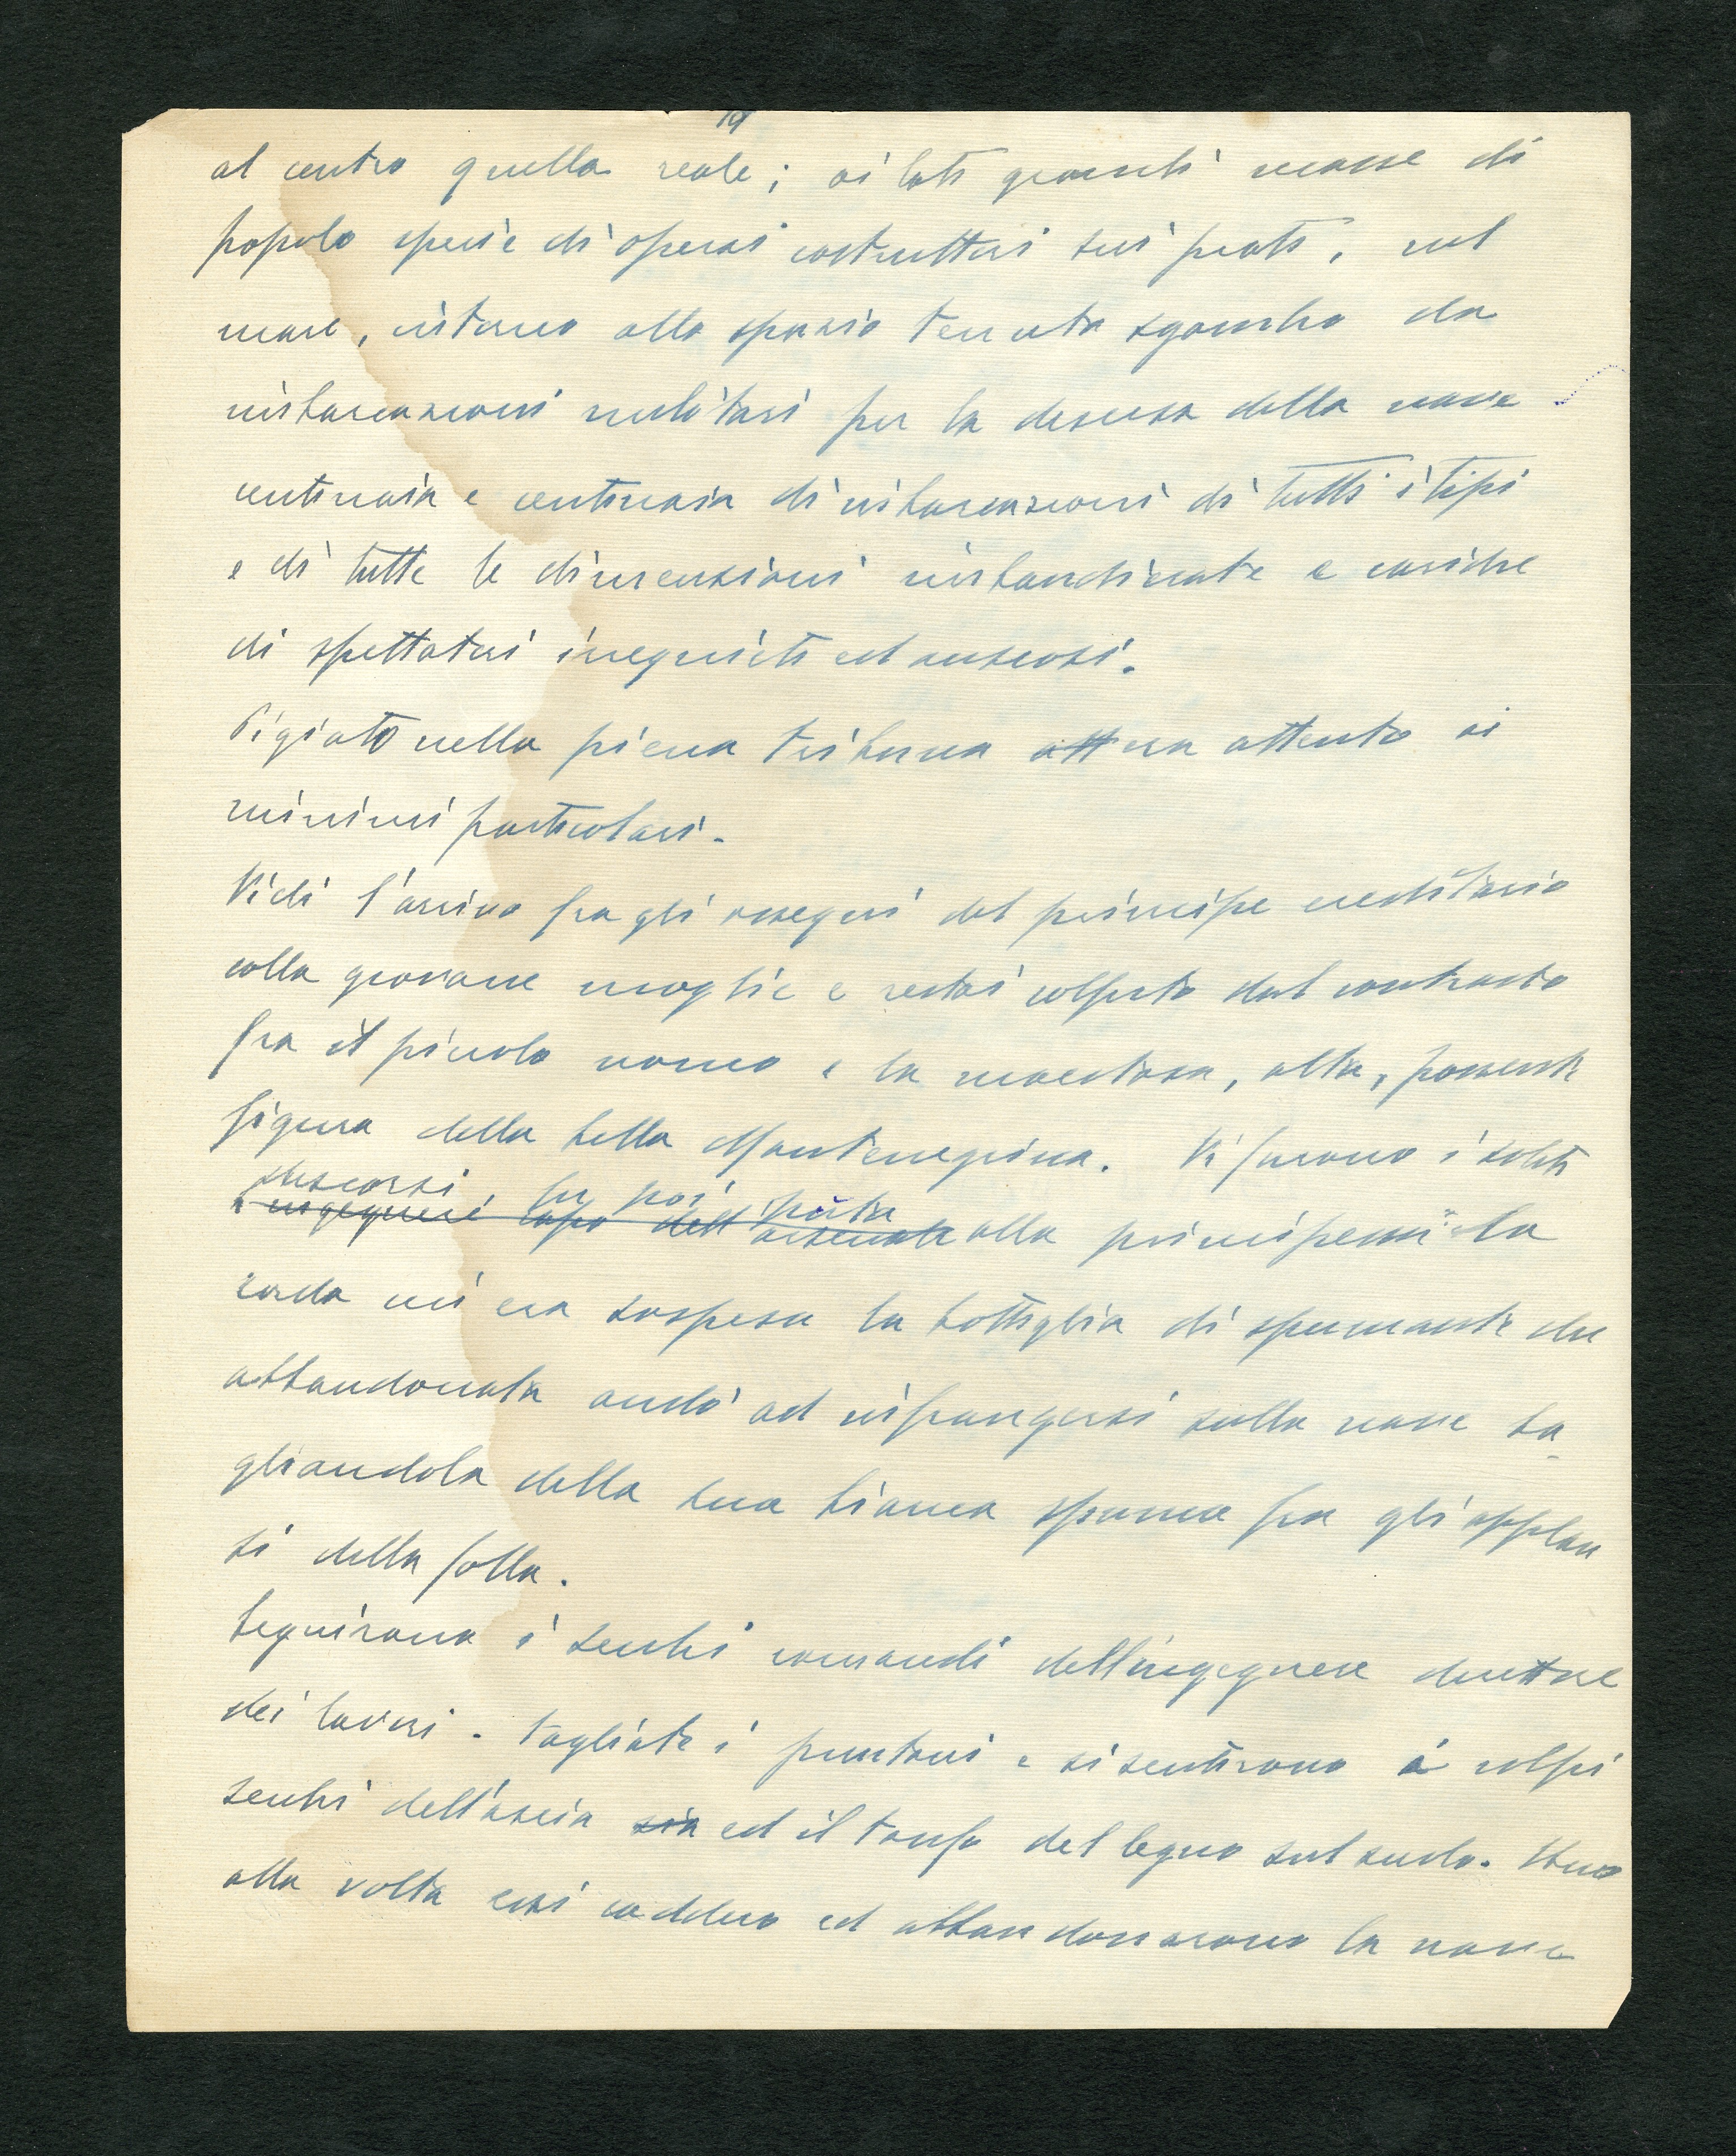 19
al centro quella reale; ai lati grandi masse di
popolo specie di operai costruttori sui prati, sul
mare, intorno allo spazio tenuto sgombro da
imbarcazioni militari per la discesa della nave
centinaia e centinaia di imbarcazioni di tutti i tipi
e di tutte le dimensioni imbandierate e cariche
di spettatori irrequieti ed ansiosi.
Pigiato nella piena tribuna att era attento ai
minimi particolari.
Vidi l'arrivo fra gli ossequi del principe ereditario
colla giovane moglie e restai colpito dal contrasto
fra il piccolo uomo e la maestosa, alta, possente
figura della bella Montenegrina. Vi furono i soliti
discorsi, fu poi porta
ingegnere capo dell'arsenale alla principessa la
corda cui era sospesa la bottiglia di spumante che
abbandonata andò ad infrangersi sulla nave ba-
gliandola della sua bianca spuma fra gli applau
si della folla.
Seguirono i secchi comandi dell'ingegnere direttore
dei lavori. Tagliate i puntoni e si sentirono i colpi
secchi dell'ascia sia ed il tonfo del legno sul suolo. Uno
alla volta essi caddero ed abbandonarono la nave